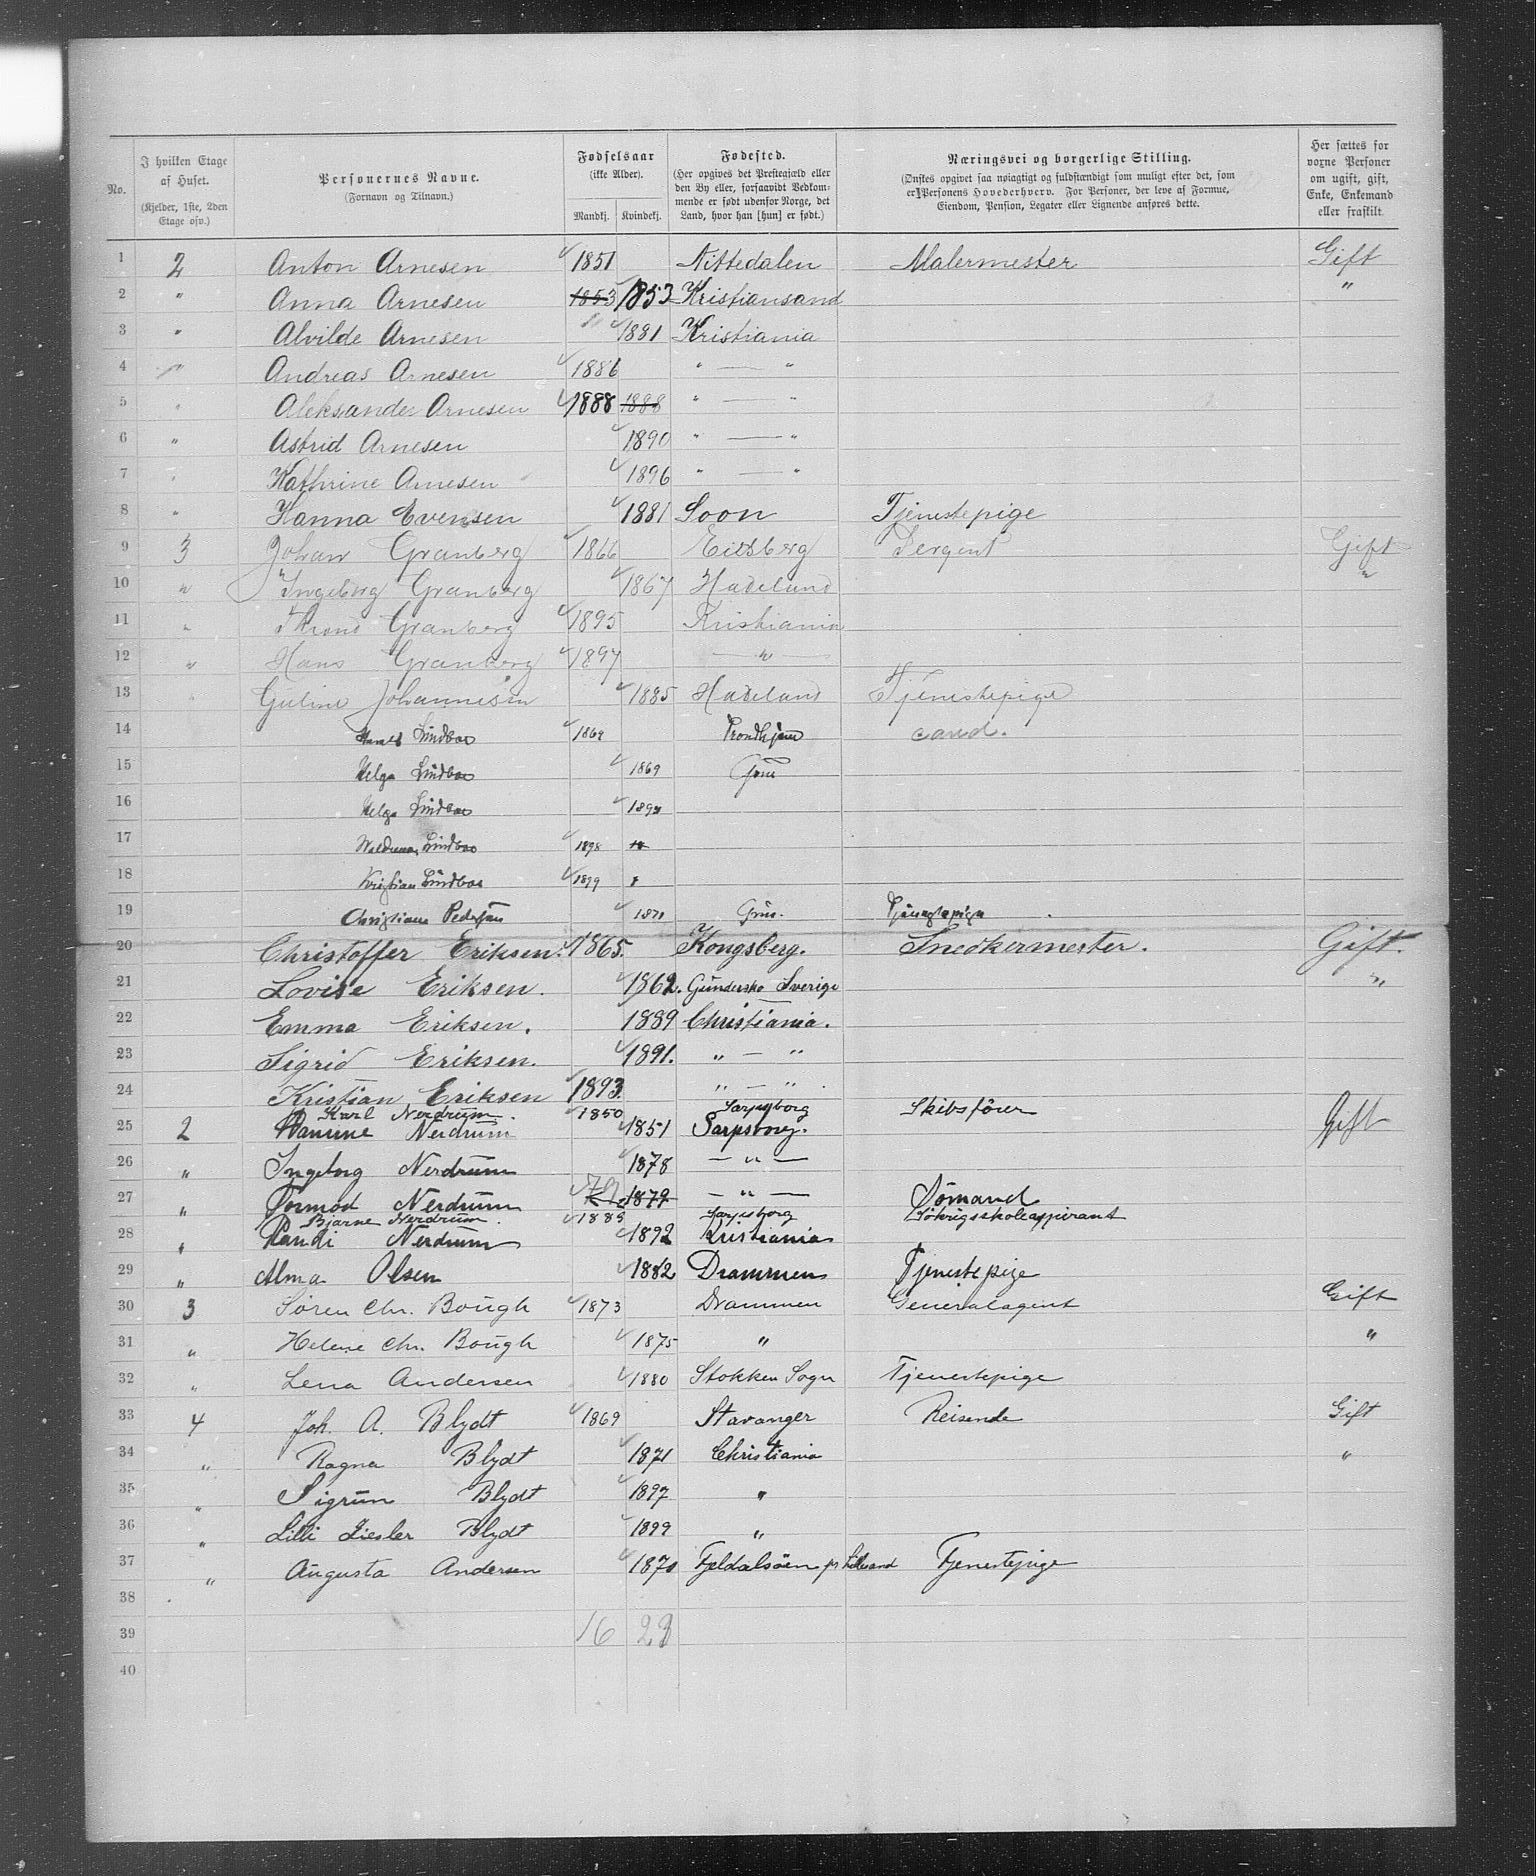 No.
I hvilken Etage af Huset. (Kjelder, 1ste, 2den Etage osv.)
Personernes Navne. (Fornavn og Tilnavn.)
Fødselsaar (ikke Alder). Mandkj. Kvindekj.
Fødested. (Her opgives det Prestegjæld eller den By eller, forsaavidt Vedkommende er født udenfor Norge, det Land, hvor han [hun] er født.)
Næringsvei og borgerlige Stilling. (Ønskes opgivet saa nøiagtigt og fuldstændigt som muligt efter det, som er Personens Hovederhverv. For Personer, der leve af Formue, Eiendom, Pension, Legater eller Lignende anføres dette.
Her sættes for voxne Personer om ugift, gift, Enke, Enkemand eller fraskilt.
1 2 Anton Arnesen 1851 Nittedalen Malermester Gift
2 " Anna Arnesen 1853 1853 Kristiansand "
3 " Alvilde Arnesen 1881 Kristiania
4 " Andreas Arnesen 1886 " — "
5 " Aleksander Arnesen 1888 1888 " — "
6 " Astrid Arnesen 1890 " — "
7 " Kathrine Arnesen 1896 " — "
8 " Hanna Evensen 1881 Soon Tjenestepige
9 3 Johan Granberg 1866 Eidsberg Sergent Gift
10 " Ingeborg Granberg 1867 Hadeland "
11 " Thrond Granberg 1895 Kristiania
12 " Hans Granberg 1897 — " —
13 " Guline Johannesen 1885 Hadeland Tjenestepige
14 Harald Lindboe 1869 Trondhjem cand.
15 Helga Lindboe 1869
16 Helga Lindboe
17 Waldemar Lindboe 1898
18 Kristian Lindboe 1899
19 Christiane Pedersen 1871 Grue. Tjenestepige
20 Christoffer Eriksen. 1865. Kongsberg. Snedkermester. Gift.
21 Lovise Eriksen. 1862. Sverige "
22 Emma Eriksen. 1889 Christiania.
23 Sigrid Eriksen. 1891. " — "
24 Kristian Eriksen 1893. " — "
Karl Nerdrum. 1850 Sarpsborg Skibsfører
25 2 Hanine Nerdrum 1851 Sarpsborg. Gift
26 " Ingeborg Nerdrum 1878 — " —
27 " Tormod Nerdrum 79 1879 — " — Sømand
Bjarne Nerdrum. 1883 Sarpsborg Søkrigsskoleaspirant
28 " Randi Nerdrum 1892 Kristiania
29 " Alma Olsen 1882 Drammen Tjenestepige
30 3 Søren Chr. Bough 1873 Drammen Generalagent Gift
31 " Helene Chr. Bough 1875 " "
32 " Lena Andersen 1880 Stokken Sogn Tjenestepige
33 4 Joh. A. Blydt 1869 Stavanger Reisende Gift
34 " Ragna Blydt 1871 Christiania "
35 " Sigrun Blydt 1897 "
36 " Lilli Ziesler Blydt 1899 "
37 " Augusta Andersen 1870 Fjeldalsøen pr Lillesand Tjenestepige
38
39 16 23
40